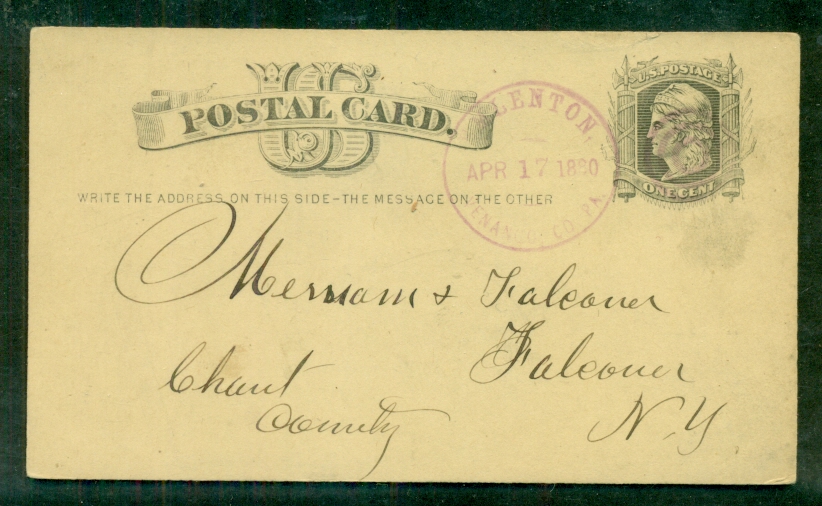 US
POSTAL CARD.
U.S. POSTAGE
ONE CENT
LENTON,
APR 17 1880
ENANGO CO. PA.
WRITE THE ADDRESS ON THIS SIDE-THE MESSAGE ON THE OTHER
Merriam & Falconer
Falconer
Chaut
County
N.Y